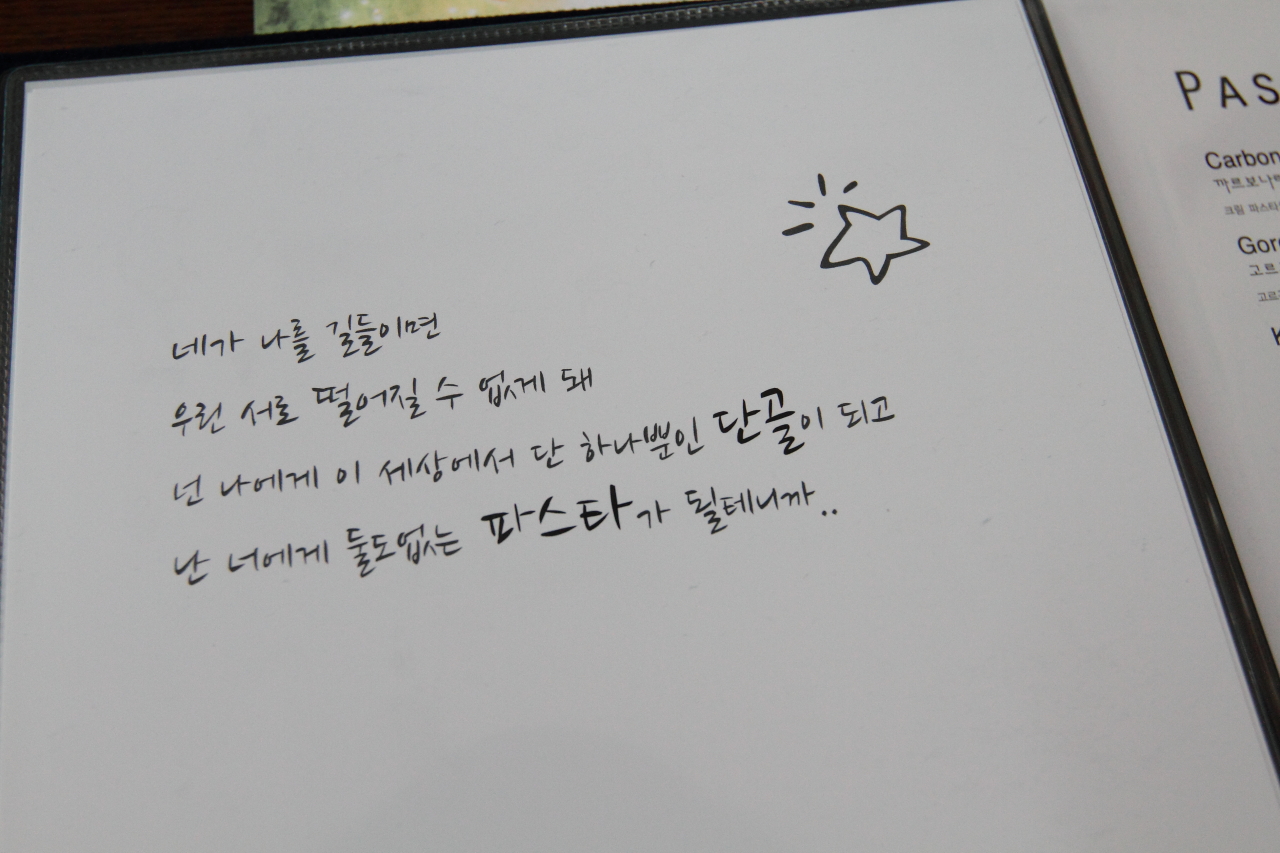 네가 나를 길들이면
우린 서로 떨어질 수 없게 돼
넌 나에게 이 세상에서 단 하나뿐인 단골이 되고
난 너에게 둘도없는 파스타가 될테니까..
PAS
Carbon
까르보나
크림 파스타
Gor
고르
고르
K